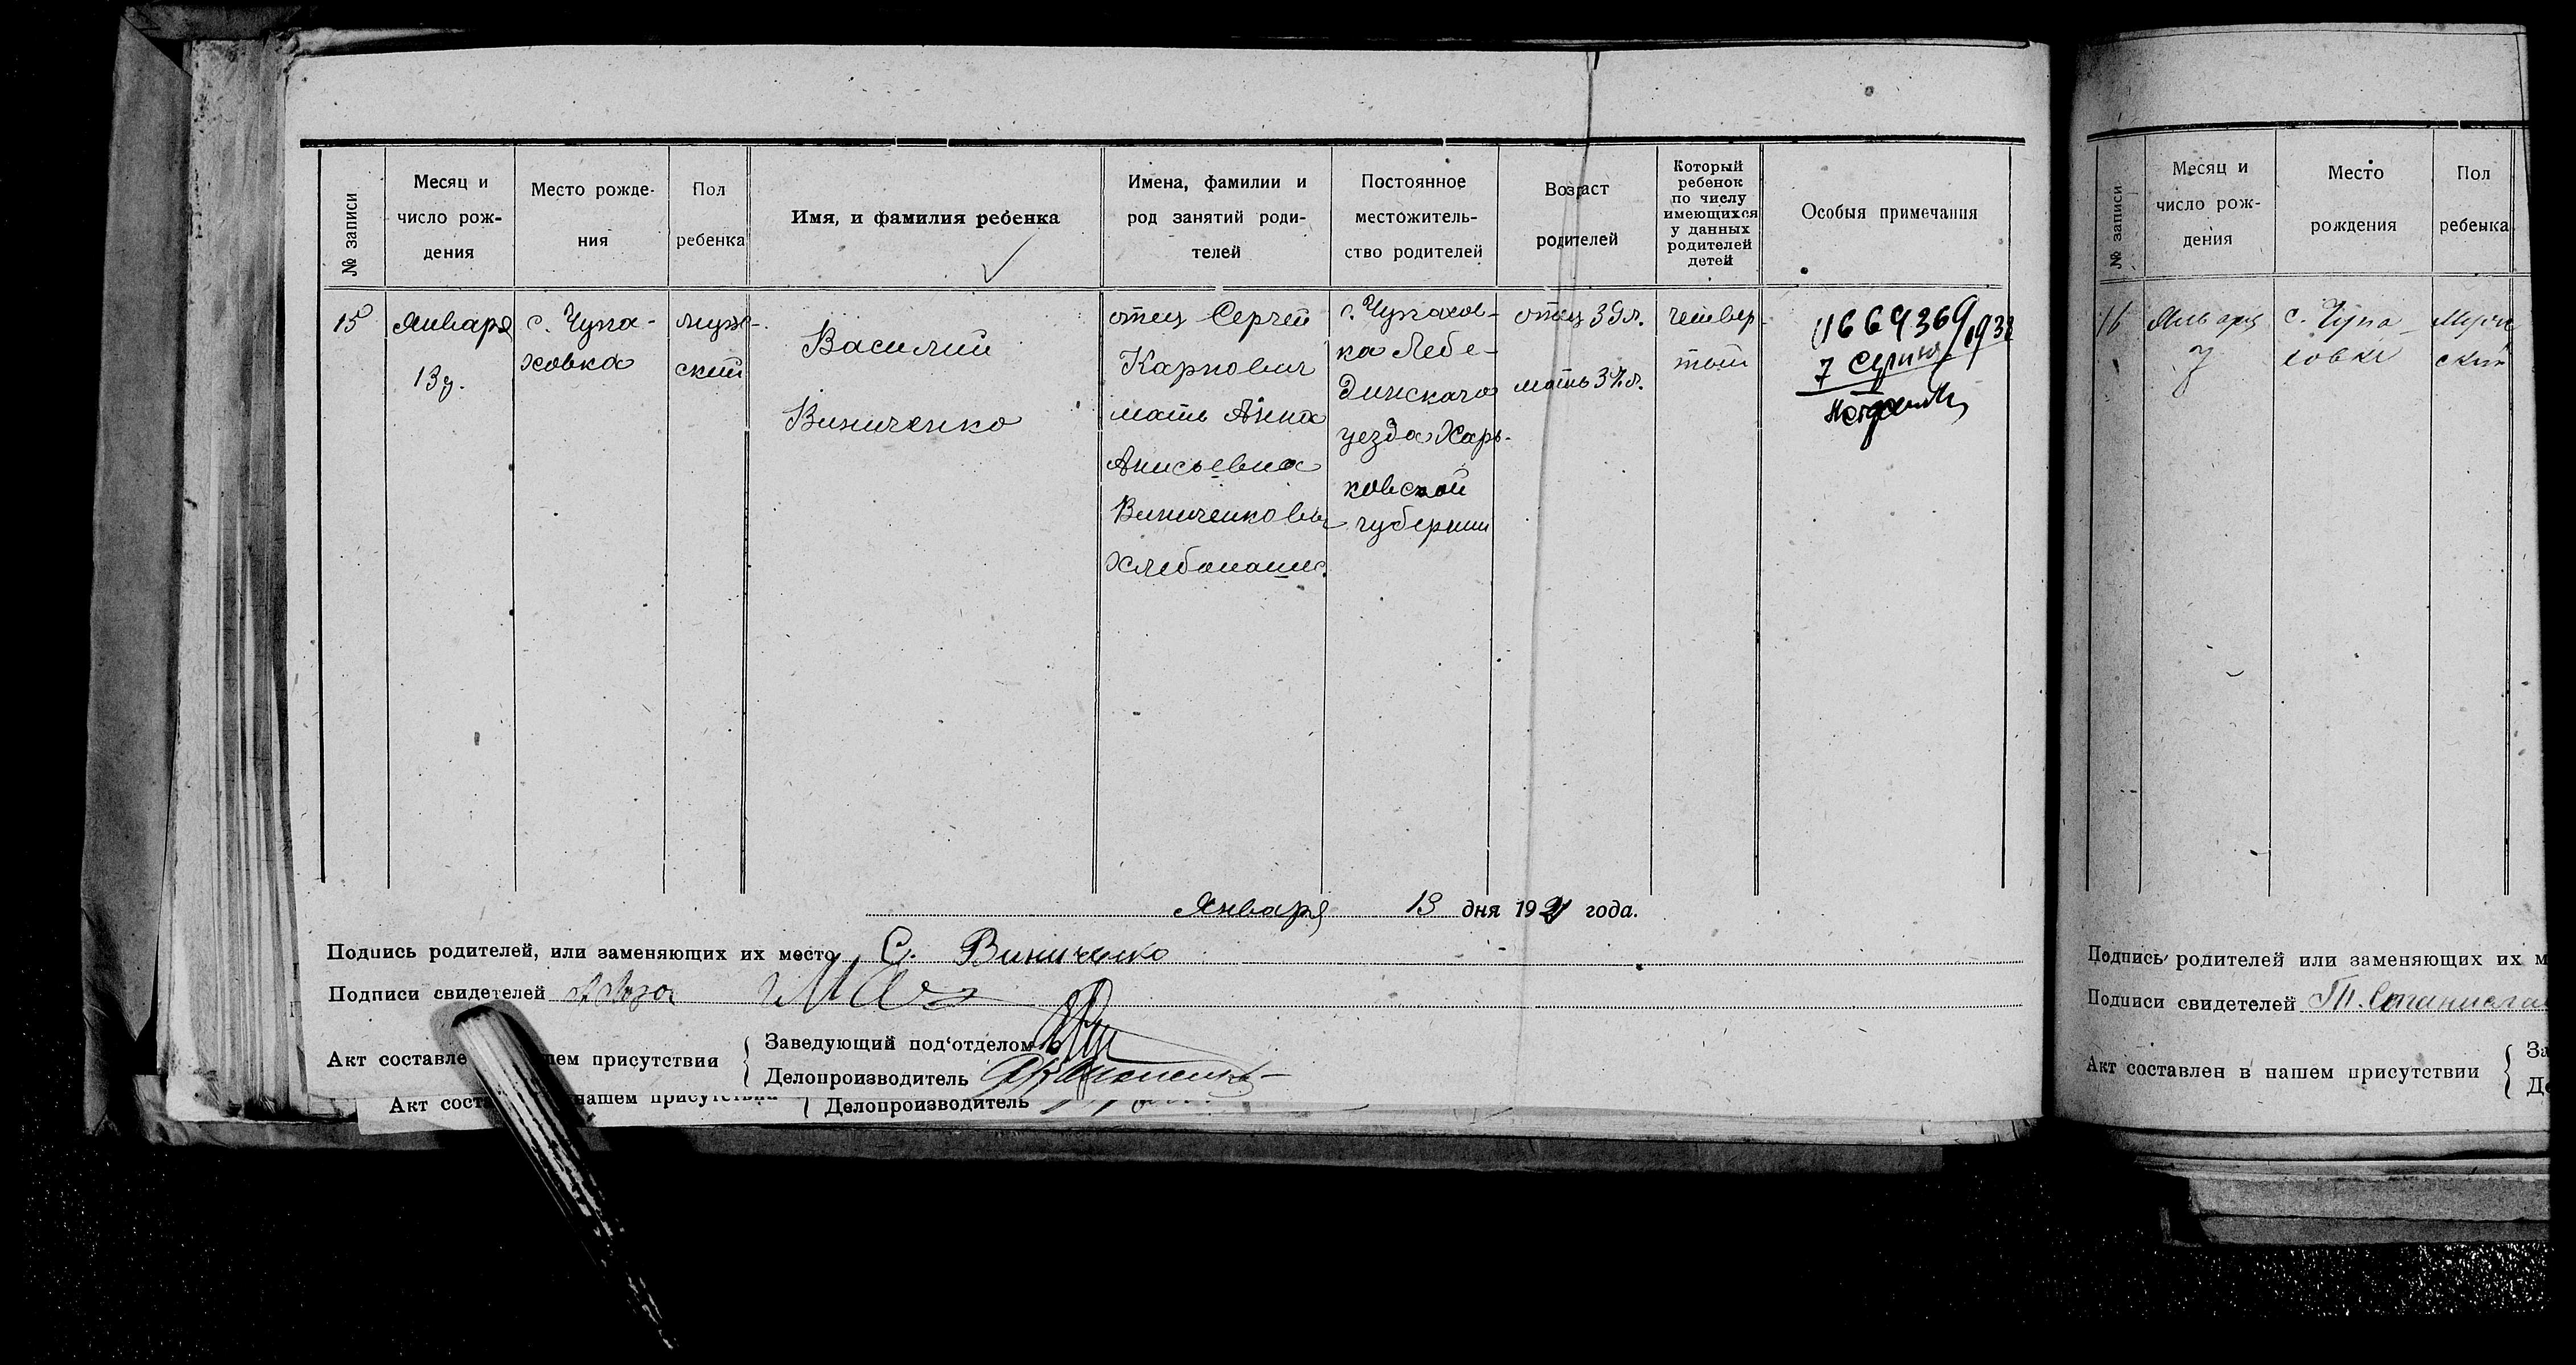 № записи
Месяц и
число рож-
дения
Место рожде-
ния
Пол
ребенка
Имя, и фамилия ребенка
Имена, фамилии и
род занятий роди-
телей
Постоянное
местожитель-
ство родителей
Возраст
родителей
Который
ребенок
по числу
имеющихся
у данных
родителей
детей
Особыя примечания
15
Января
13 д.
с. Чупа-
ховка
муж-
ской
Василий
Виниченко
отец Сергей
Карпович
мать Анна
Анисьевна
Виниченковы
Хлебопашц.
с. Чупахов-
ка Лебе-
динскаго
уезда Харь-
ковской
губернии
отец 39 л.
мать 37 л.
четвер-
тый
1664369
7 Серпня 1938
Января 13 дня 1921 года.
Подпись родителей, или заменяющих их место С. Виниченко
Подписи свидетелей
Акт составле нем присутствии
Заведующий под'отделом
Делопроизводитель
Акт сост нашем присутствии
Делопроизводитель
№ записи
Месяц и
число рож-
дения
Место
рождения
Пол
ребенка
16
Января
7
с. Чупа-
ховка
Муж
ской
Подпись родителей или заменяющих их м
Подписи свидетелей
Акт составлен в нашем присутствии
За
Де